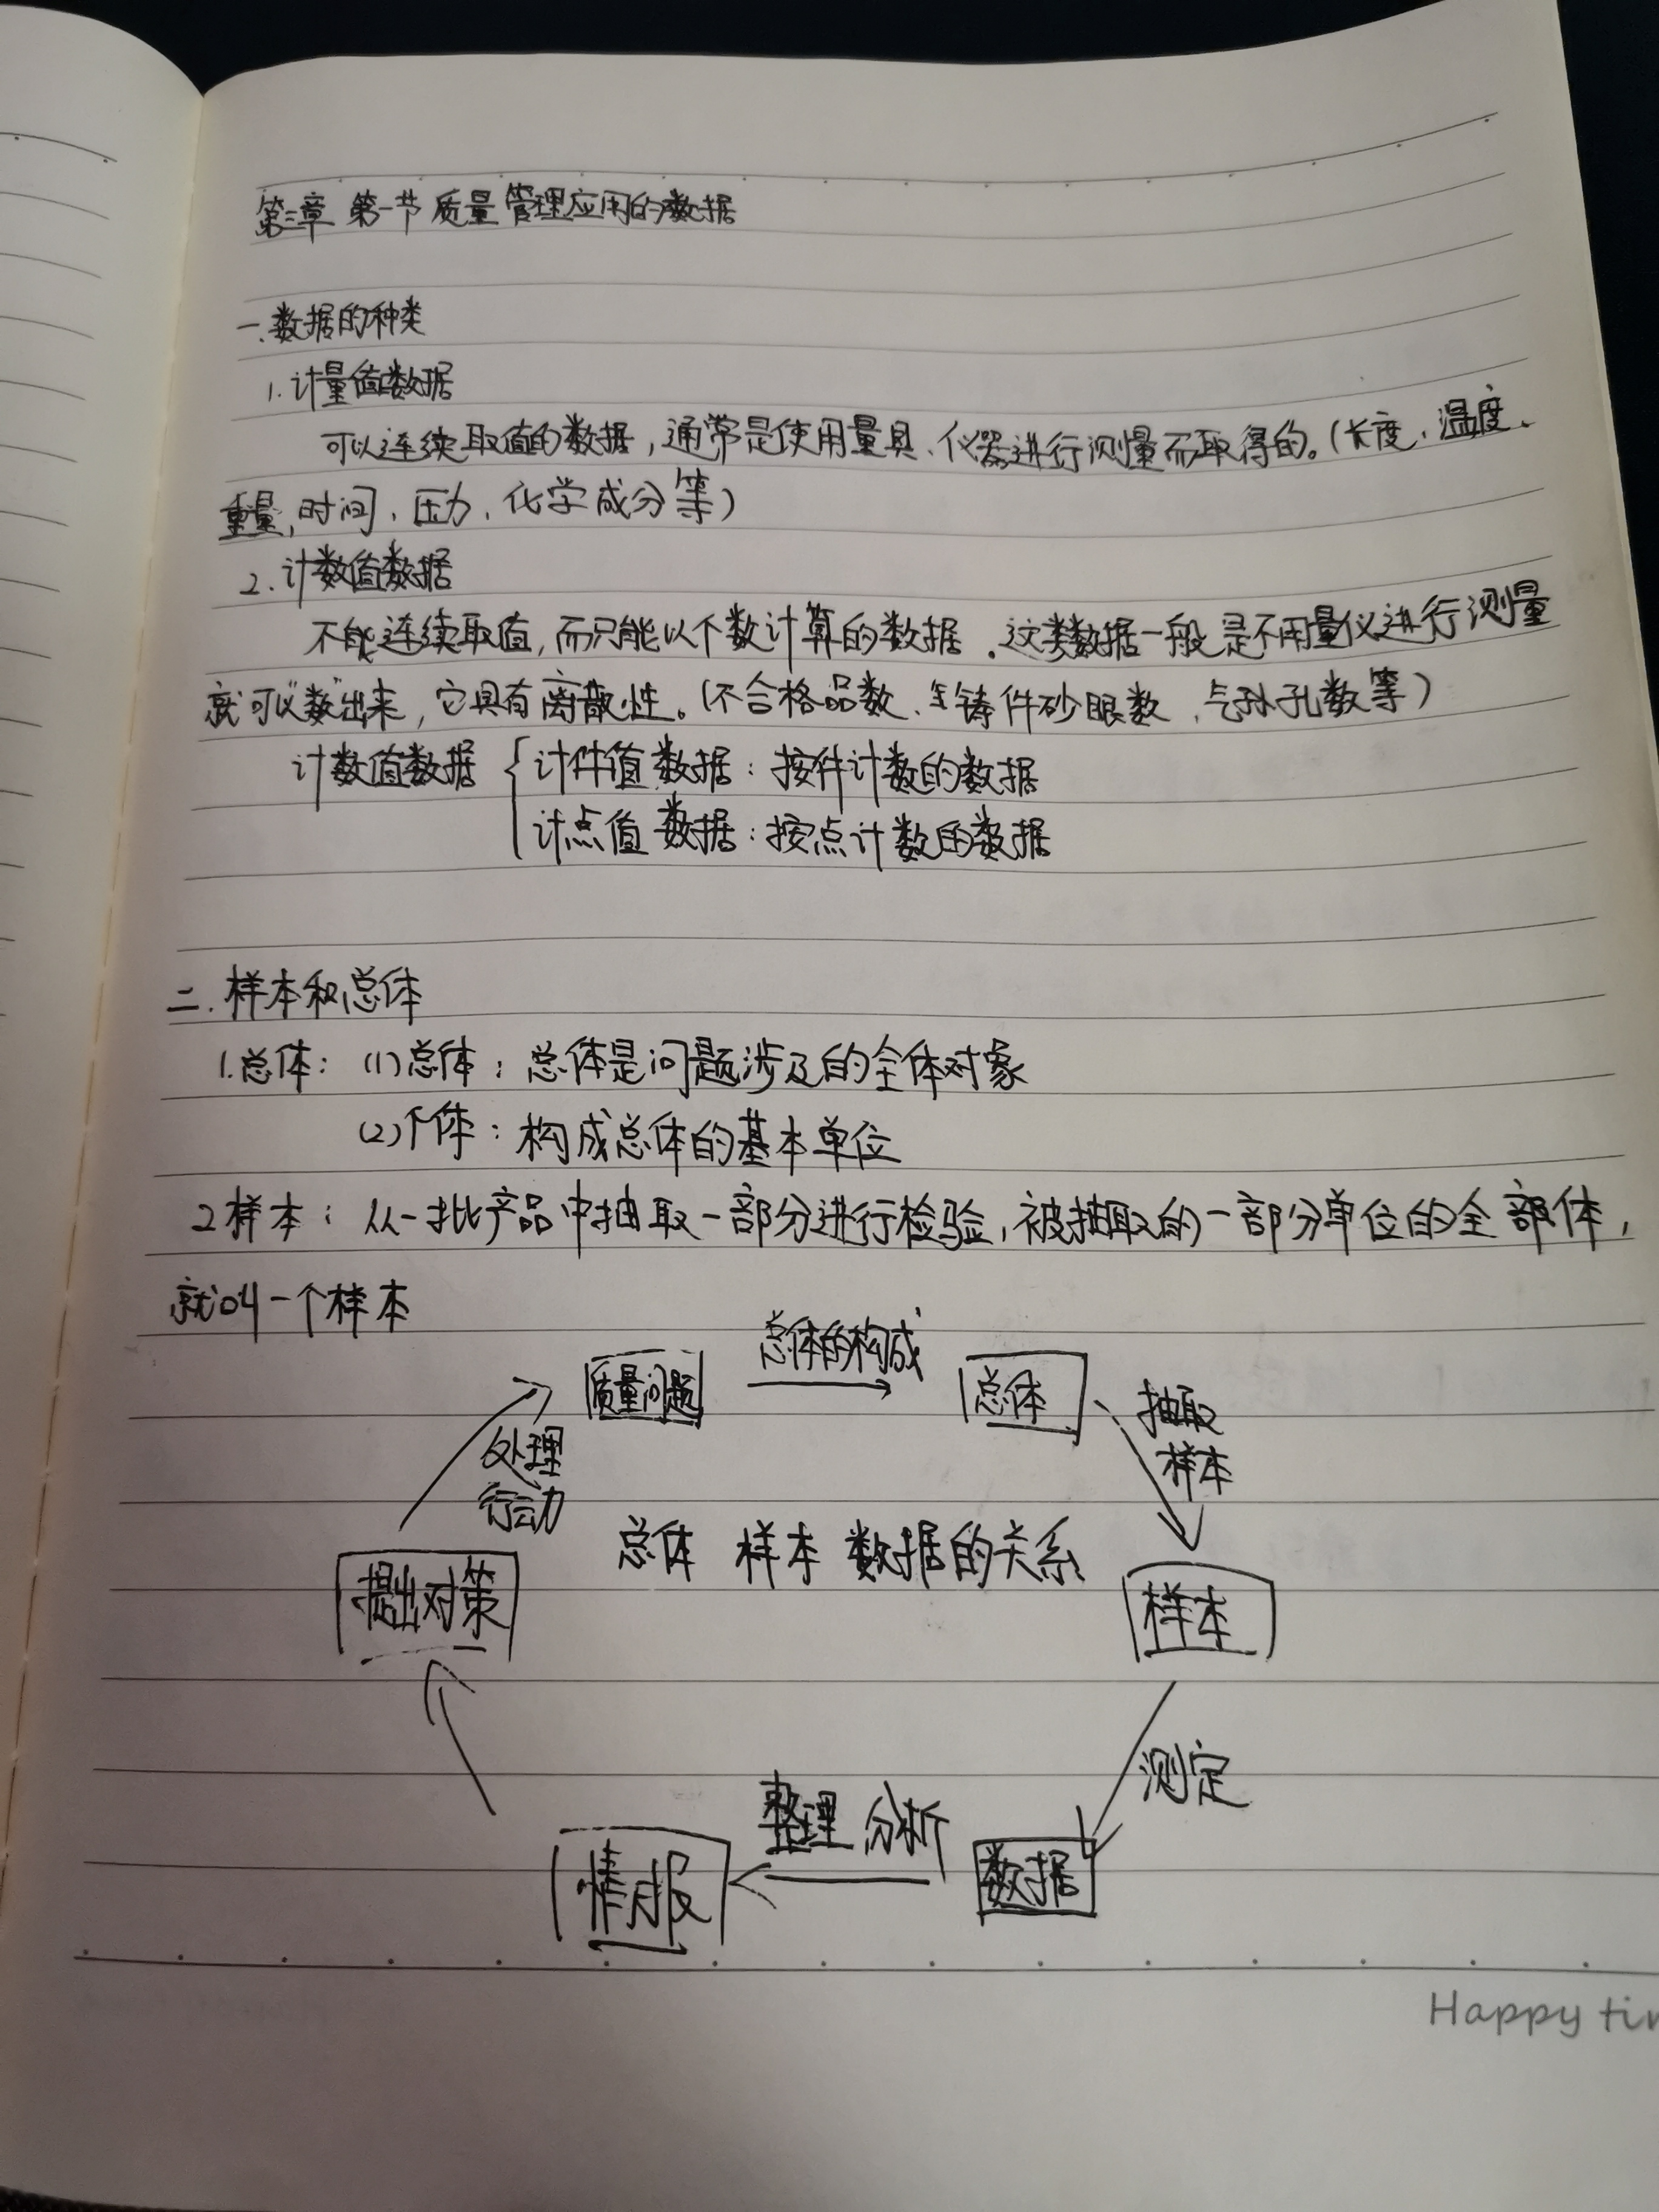 第三章 第一节 质量管理应用的数据
一.数据的种类
1.计量值数据
可以连续取值的数据，通常是使用量具、仪器进行测量而取得的。(长度、温度、
重量、时间、压力、化学成分等)
2.计数值数据
不能连续取值，而只能以个数计算的数据。这类数据一般是不用量仪进行测量
就可以"数"出来，它具有离散性。(不合格品数、铸件砂眼数、气孔数等)
计数值数据 { 计件值数据：按件计数的数据
计点值数据：按点计数的数据
二.样本和总体
1.总体：(1)总体：总体是问题涉及的全体对象
(2)个体：构成总体的基本单位
2样本：从一批产品中抽取一部分进行检验，被抽取的一部分单位的全部体，
就叫一个样本
总体的构成
质量问题 总体
抽取
样本
处理
行动
总体 样本 数据的关系
提出对策 样本
测定
整理 分析
情报 数据
Happy